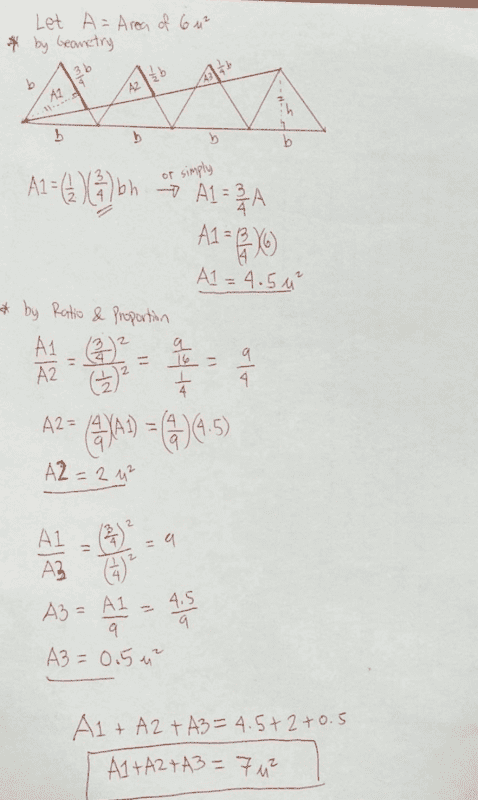 Let A = Area of 6 u²
* by Geometry
b A1 3/4 b A2 1/2 b A3 1/4 b h
b b b b
A1 = (1/2)(3/4) bh or simply → A1 = 3/4 A
A1 = (3/4)(6)
A1 = 4.5 u²
* by Ratio & Proportion
A1/A2 = (3/4)²/(1/2)² = (9/16)/(1/4) = 9/4
A2 = (4/9)(A1) = (4/9)(4.5)
A2 = 2 u²
A1/A3 = (3/4)²/(1/4)² = 9
A3 = A1/9 = 4.5/9
A3 = 0.5 u²
A1 + A2 + A3 = 4.5 + 2 + 0.5
A1 + A2 + A3 = 7 u²